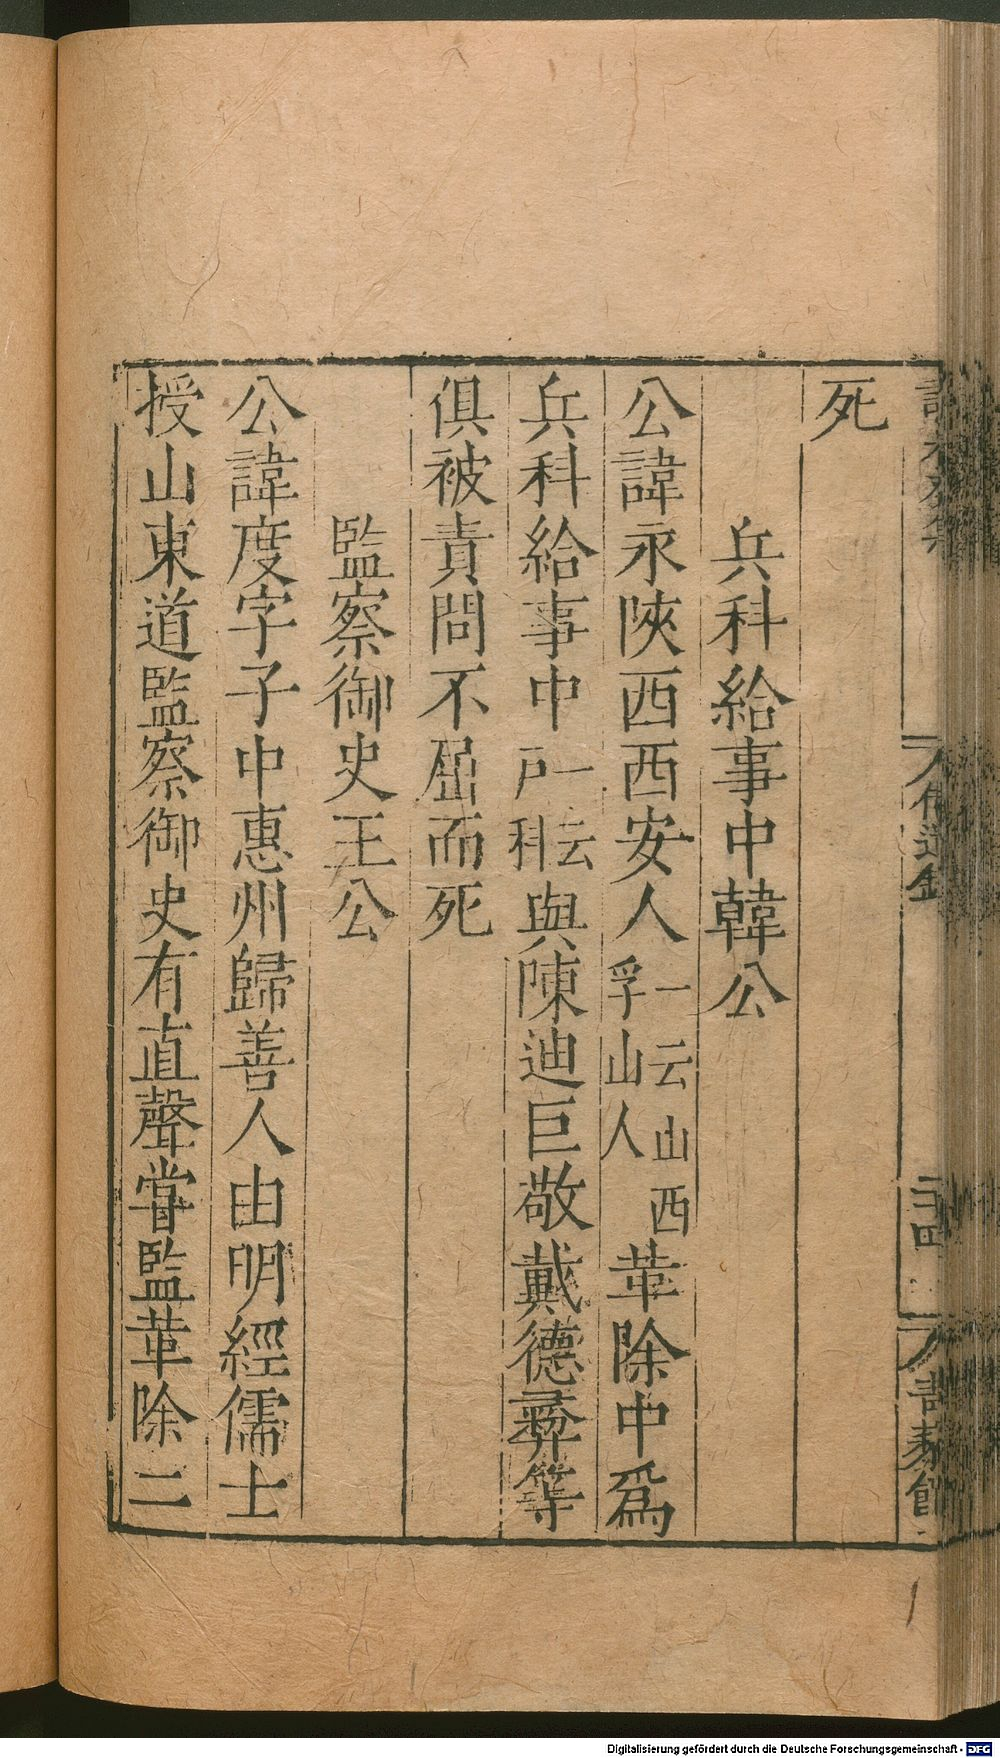 死
兵科給事中韓公
公諱永陝西西安人一云山西孚山人革除中爲
兵科給事中一云戸科與陳迪巨敬戴德彛等
俱被責問不屈而死
監察御史王公
公諱度字子中惠州歸善人由明經儒士
授山東道監察御史有直聲甞監革除二
Digitalisierung gefördert durch die Deutsche Forschungsgemeinschaft - DFG